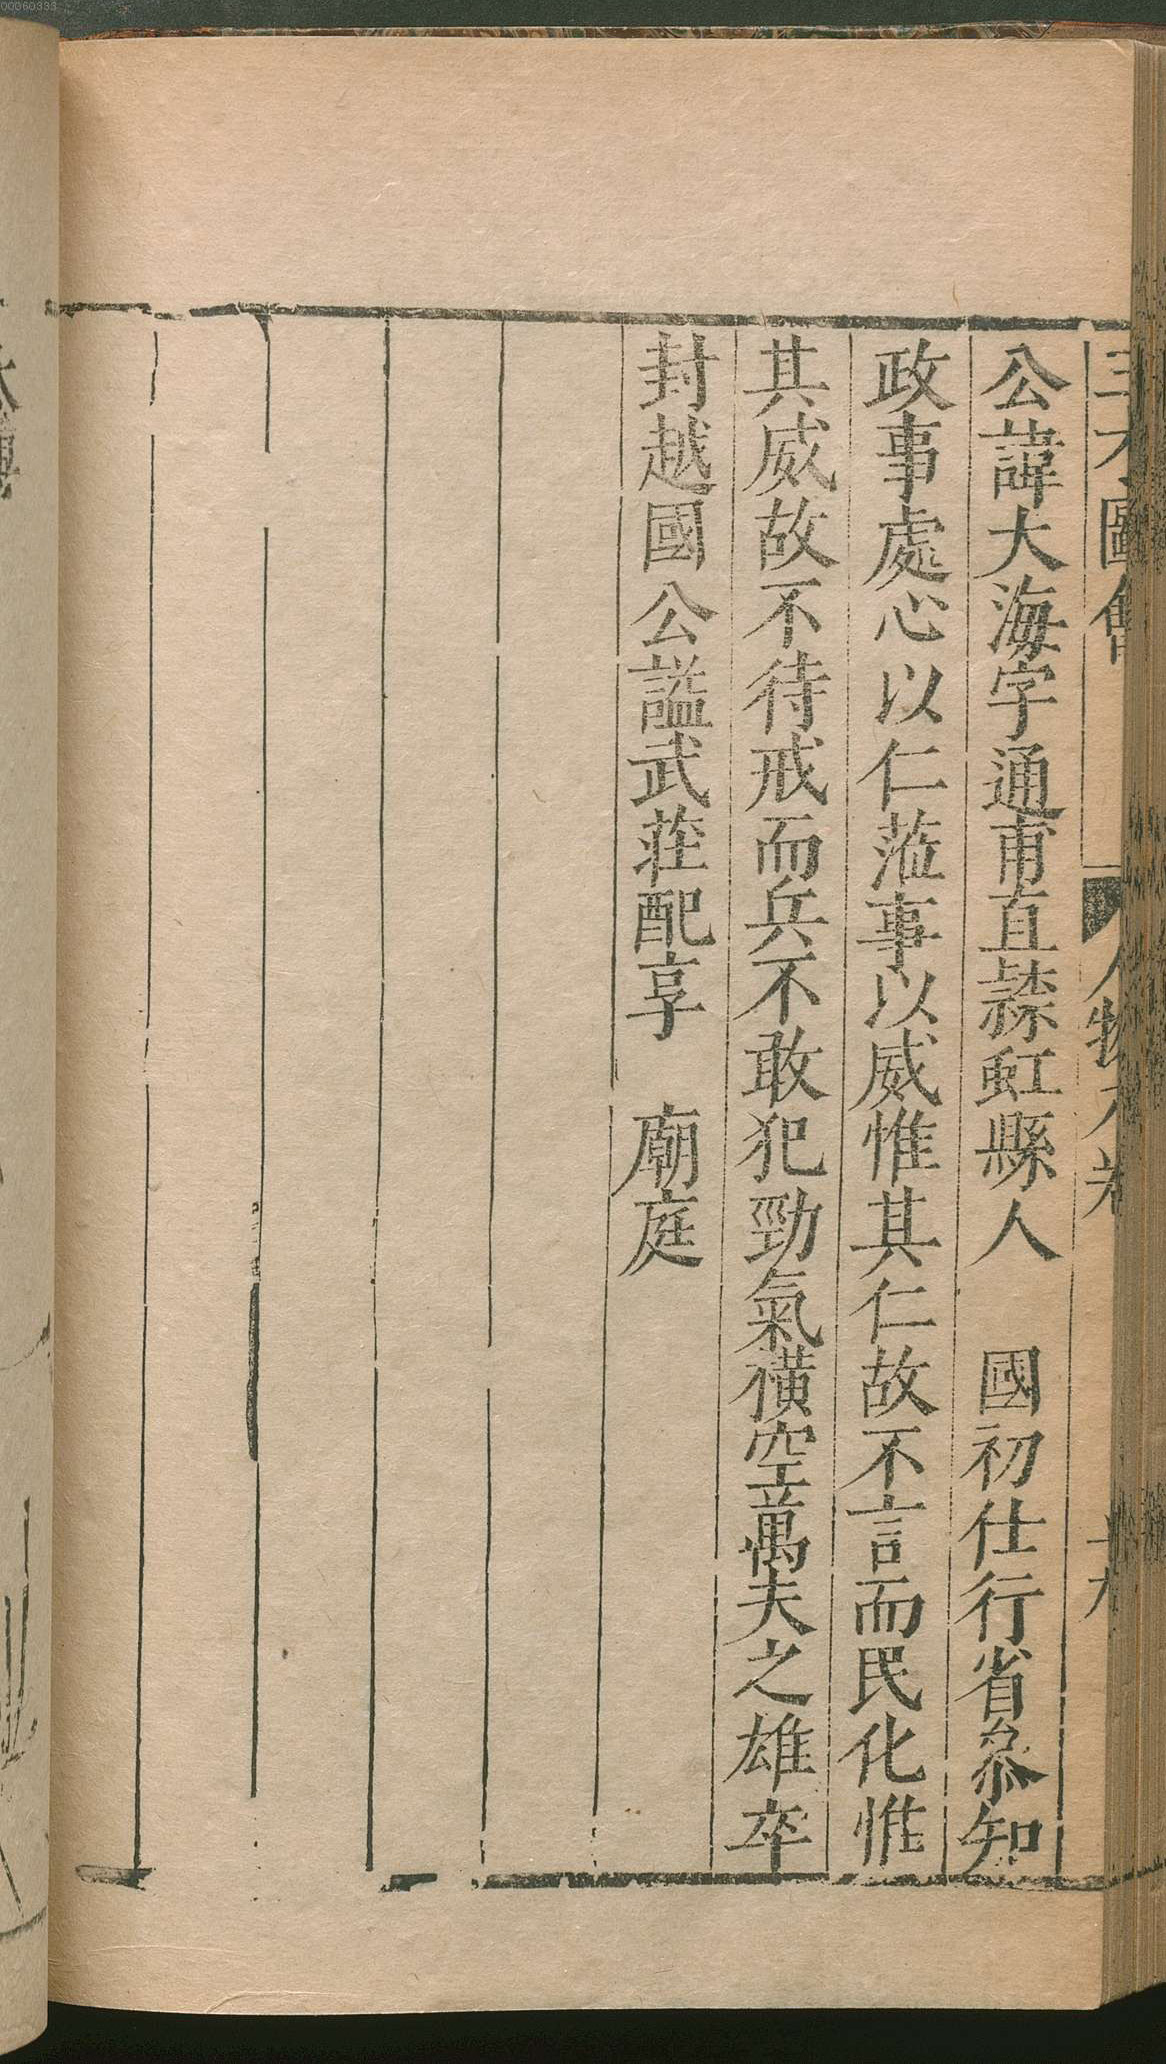 三才圖會 人物六卷
公諱大海字通甫直𨽻虹縣人　國初仕行省叅知
政事處心以仁蒞事以威惟其仁故不言而民化惟
其威故不待戒而兵不敢犯勁氣横空萬夫之雄卒
封越國公謚武莊配享　廟庭
00060333